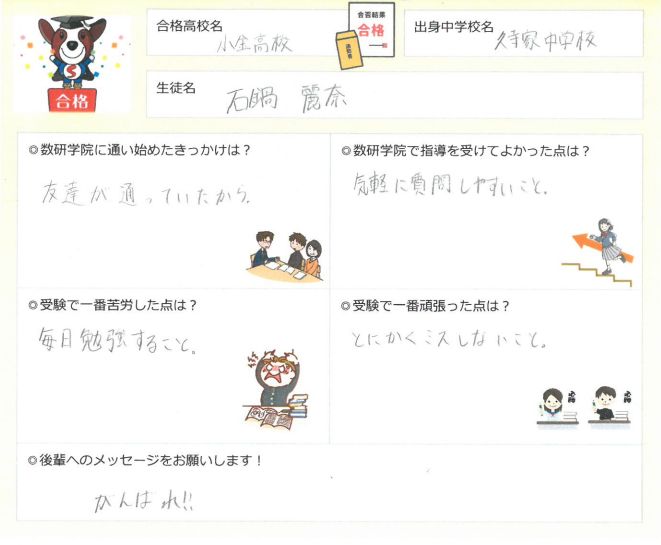 合格
合格高校名
小金高校
合否結果
合格
出身中学校名
久寺家中学校
生徒名
石鍋 麗奈
◎数研学院に通い始めたきっかけは？
友達が通っていたから。
◎数研学院で指導を受けてよかった点は？
気軽に質問しやすいこと。
◎受験で一番苦労した点は？
毎日勉強すること。
◎受験で一番頑張った点は？
とにかくミスしないこと。
◎後輩へのメッセージをお願いします！
がんばれ!!